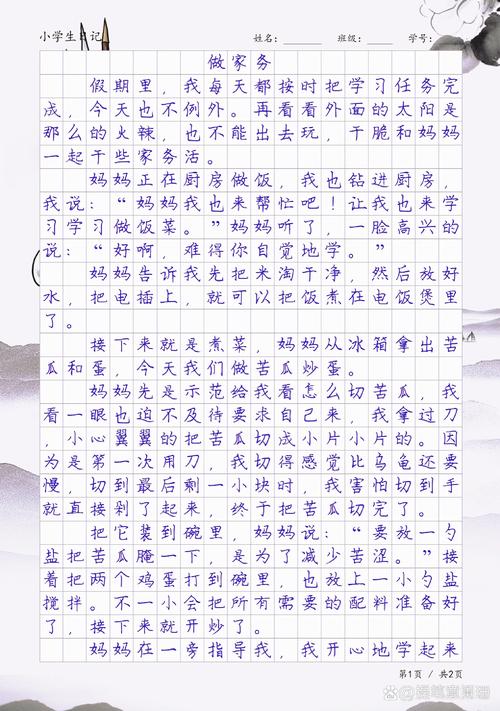 小学生日记
姓名：______ 班级：______ 学号：
做家务
假期里，我每天都按时把学习任务完
成，今天也不例外。再看看外面的太阳是
那么的火辣，也不能出去玩，干脆和妈妈
一起干些家务活。
妈妈正在厨房做饭，我也钻进厨房，
我说：“妈妈我也来帮忙吧！让我也来学
习学习做饭菜。”妈妈听了，一脸高兴的
说：“好啊，难得你自觉地学。”
妈妈告诉我先把米淘干净，然后放好
水，把电插上，就可以把饭煮在电饭煲里
了。
接下来就是煮菜，妈妈从冰箱拿出苦
瓜和蛋，今天我们做苦瓜炒蛋。
妈妈先是示范给我看怎么切苦瓜，我
看一眼也迫不及待要求自己来，我拿过刀
，小心翼翼的把苦瓜切成小片小片的。因
为是第一次用刀，我切得感觉比乌龟还要
慢，切到最后剩一小块时，我害怕切到手
就直接剁了起来，终于把苦瓜切完了。
把它装到碗里，妈妈说：“要放一勺
盐把苦瓜腌一下，是为了减少苦涩。”接
着把两个鸡蛋打到碗里，也放上一小勺盐
搅拌。不一小会把所有需要的配料准备好
了，接下来就开炒了。
妈妈在一旁指导我，我开心地学起来
第1页 / 共2页